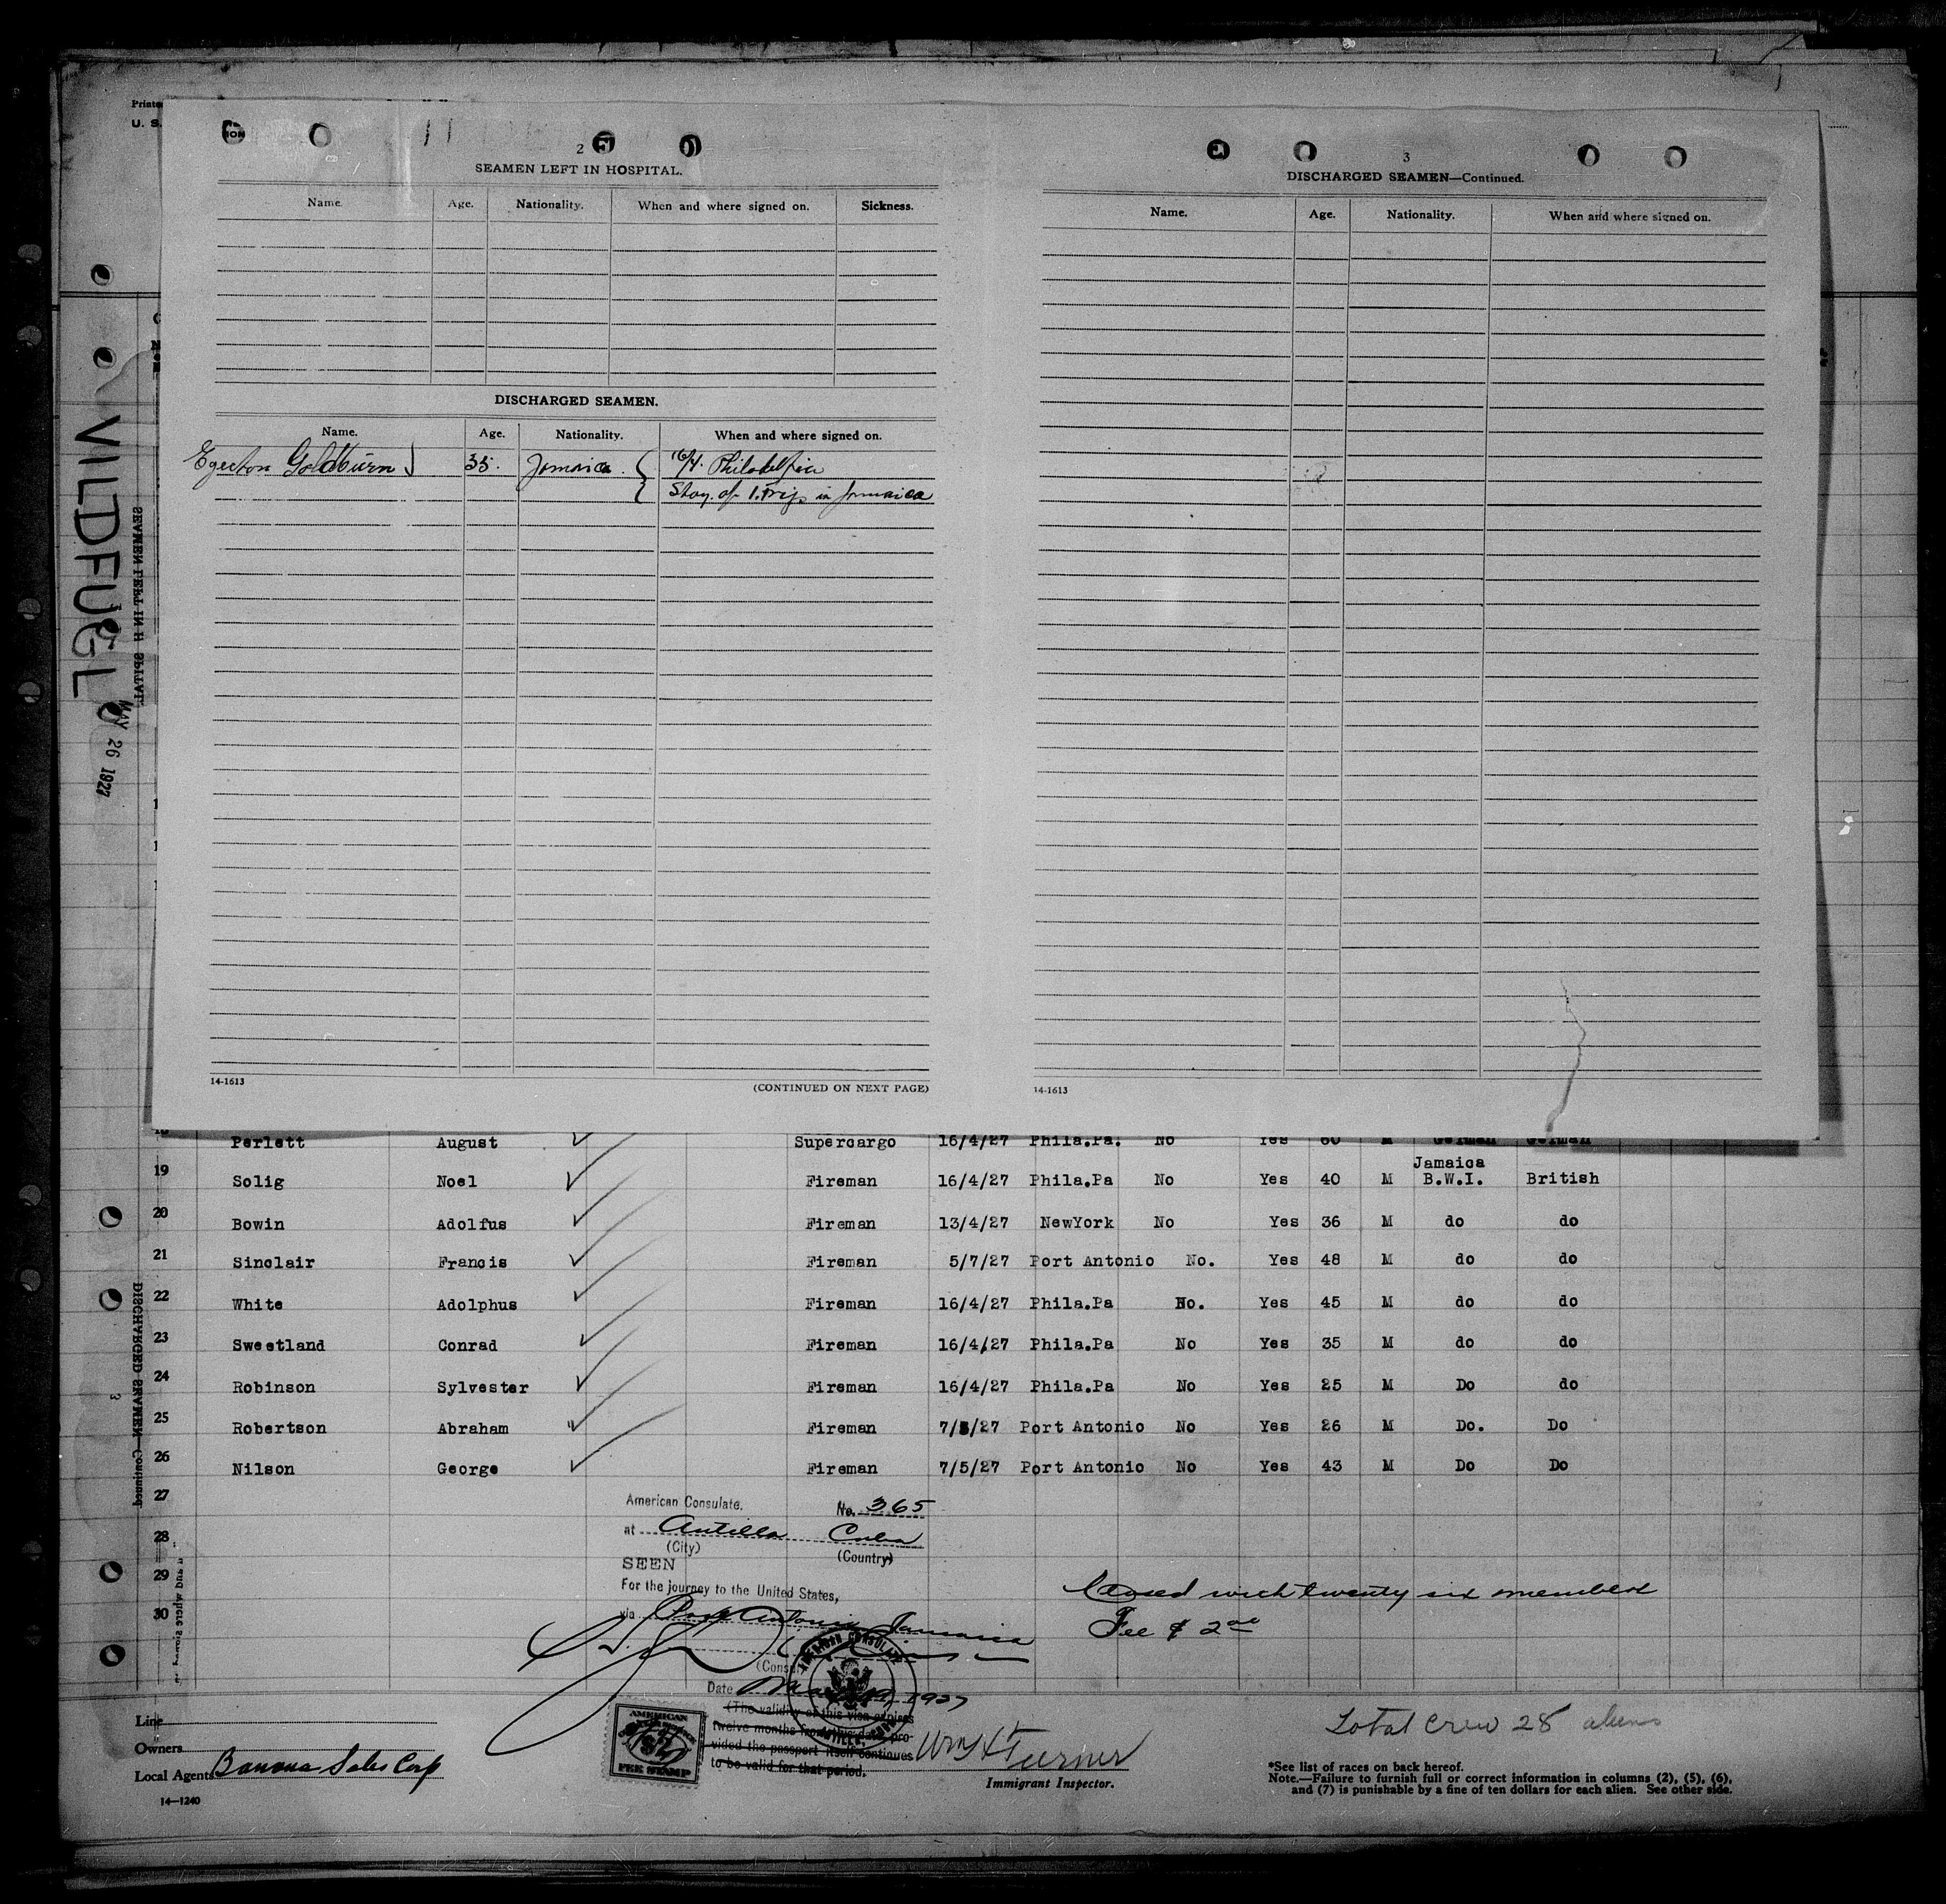 Printe
U. S.
VILDFUGL
MAY 26 1927
SEAMEN LEFT IN H SPITAL.
DISCHARGED SEAMEN—Continued
3
2
SEAMEN LEFT IN HOSPITAL.
Name. Age. Nationality. When and where signed on. Sickness.
DISCHARGED SEAMEN.
Name. Age. Nationality. When and where signed on.
Egerton Goldburn 35. Jamaica. 16/4. Philadelphia
Stay. of 1. Trip in Jamaica
14-1613
(CONTINUED ON NEXT PAGE)
3
DISCHARGED SEAMEN—Continued.
Name. Age. Nationality. When and where signed on.
14-1613
18 Perlett August Supercargo 16/4/27 Phila.Pa. No Yes 60 M German German
19 Solig Noel Fireman 16/4/27 Phila.Pa No Yes 40 M Jamaica B.W.I. British
20 Bowin Adolfus Fireman 13/4/27 NewYork No Yes 36 M do do
21 Sinclair Francis Fireman 5/7/27 Port Antonio No. Yes 48 M do do
22 White Adolphus Fireman 16/4/27 Phila.Pa No. Yes 45 M do do
23 Sweetland Conrad Fireman 16/4/27 Phila.Pa No Yes 35 M do do
24 Robinson Sylvester Fireman 16/4/27 Phila.Pa No Yes 25 M Do do
25 Robertson Abraham Fireman 7/5/27 Port Antonio No Yes 26 M Do. Do
26 Nilson George Fireman 7/5/27 Port Antonio No Yes 43 M Do Do
27
28
29
30
American Consulate. No. 365
at Antilla Cuba
(City) (Country)
SEEN
For the journey to the United States,
via Port Antonio Jamaica
(Consul
Date 1927
(The validity of this visa expires
twelve months from this date pro-
vided the passport itself continues
to be valid for that period.
AMERICAN CONSULATE
AMERICAN
FEE STAMP
Closed with twenty six members
Fee $ 2.00
Line
Owners
Local Agents Banana Sales Corp
14—1240
Wm H Turner
Immigrant Inspector.
Total crew 28 aliens
*See list of races on back hereof.
Note.—Failure to furnish full or correct information in columns (2), (5), (6),
and (7) is punishable by a fine of ten dollars for each alien. See other side.